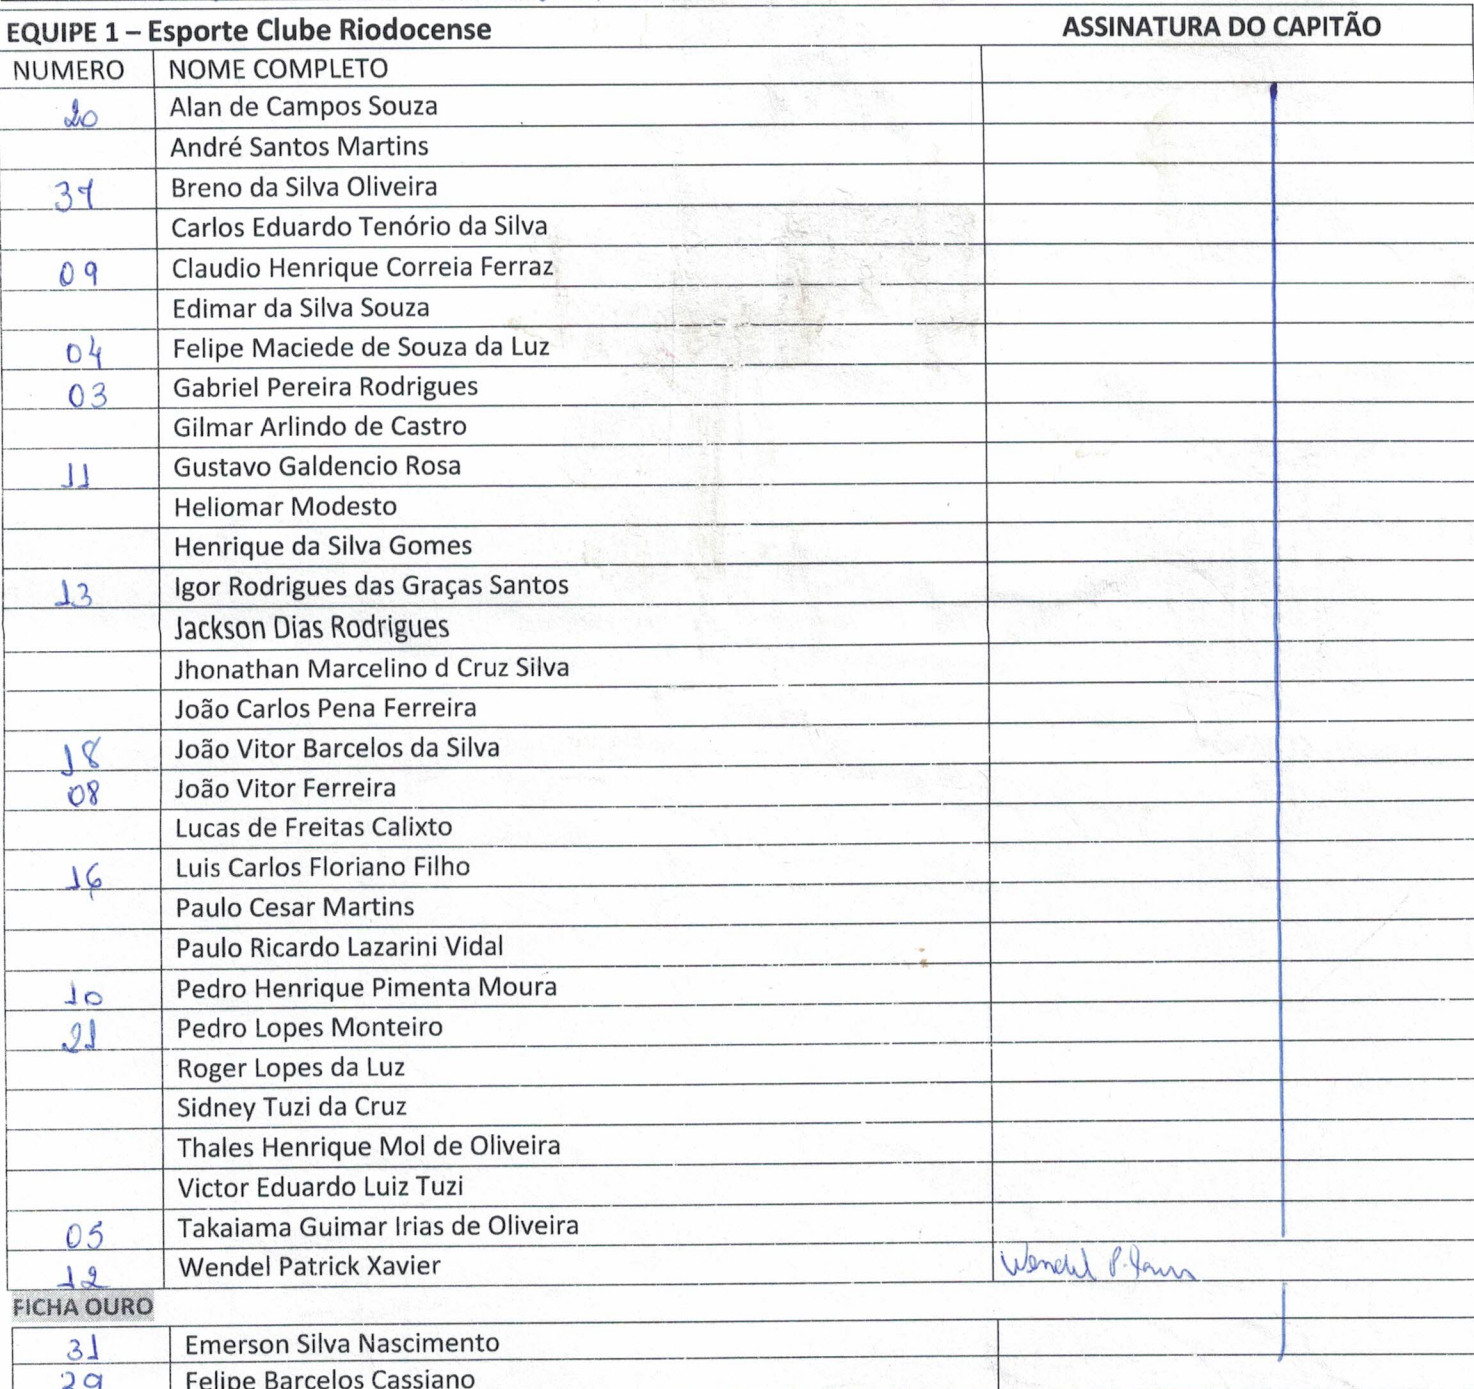 EQUIPE 1 – Esporte Clube Riodocense ASSINATURA DO CAPITÃO
NUMERO NOME COMPLETO
20 Alan de Campos Souza
André Santos Martins
Breno da Silva Oliveira
Carlos Eduardo Tenório da Silva
09 Claudio Henrique Correia Ferraz
Edimar da Silva Souza
04 Felipe Maciede de Souza da Luz
03 Gabriel Pereira Rodrigues
Gilmar Arlindo de Castro
11 Gustavo Galdencio Rosa
Heliomar Modesto
Henrique da Silva Gomes
13 Igor Rodrigues das Graças Santos
Jackson Dias Rodrigues
Jhonathan Marcelino d Cruz Silva
João Carlos Pena Ferreira
18 João Vitor Barcelos da Silva
08 João Vitor Ferreira
Lucas de Freitas Calixto
16 Luis Carlos Floriano Filho
Paulo Cesar Martins
Paulo Ricardo Lazarini Vidal
10 Pedro Henrique Pimenta Moura
21 Pedro Lopes Monteiro
Roger Lopes da Luz
Sidney Tuzi da Cruz
Thales Henrique Mol de Oliveira
Victor Eduardo Luiz Tuzi
05 Takaiama Guimar Irias de Oliveira
12 Wendel Patrick Xavier Wendel P.
FICHA OURO
31 Emerson Silva Nascimento
29 Felipe Barcelos Cassiano